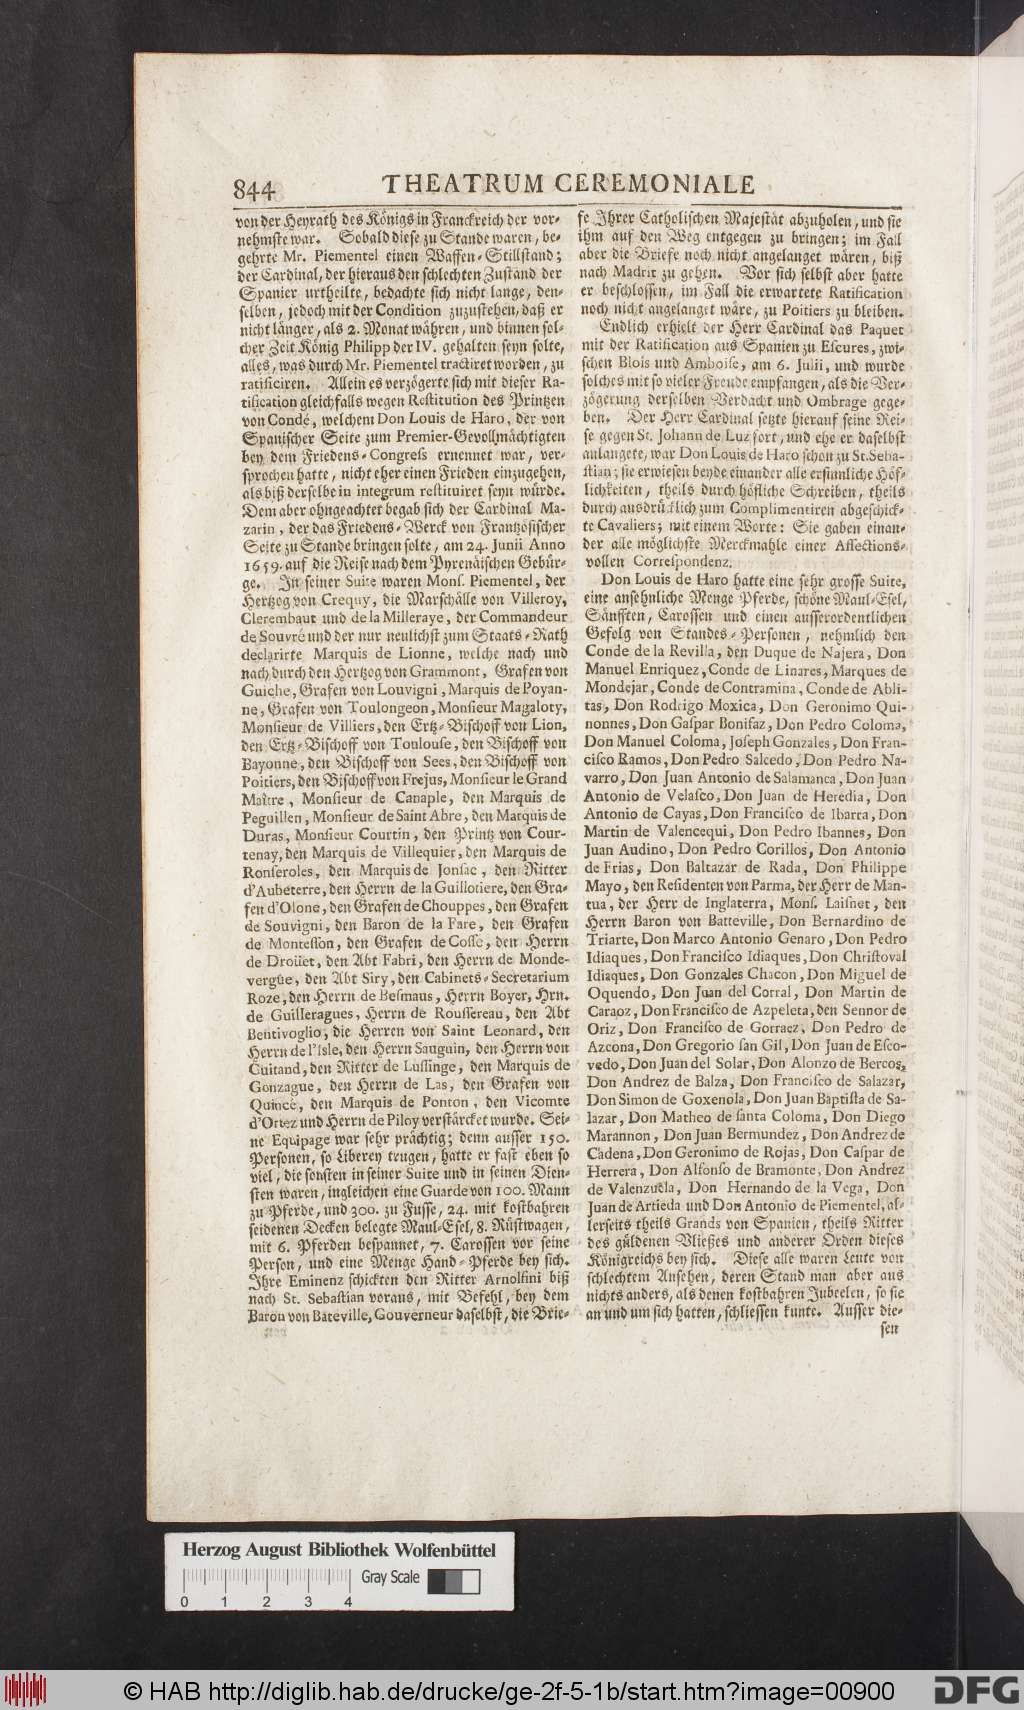 844 THEATRUM CEREMONIALE
von der Heyrath des Königs in Franckreich der vor-
nehmste war. Sobald diese zu Stande waren, be-
gehrte Mr. Piementel einen Waffen-Stillstand;
der Cardinal, der hieraus den schlechten Zustand der
Spanier urtheilte, bedachte sich nicht lange, den-
selben, jedoch mit der Condition zuzustehen, daß er
nicht länger, als 2. Monat währen, und binnen sol-
cher Zeit König Philipp der IV. gehalten seyn solte,
alles, was durch Mr. Piementel tractiret worden, zu
ratificiren. Allein es verzögerte sich mit dieser Ra-
tification gleichfalls wegen Restitution des Printzen
von Condé, welchem Don Louis de Haro, der von
Spanischer Seite zum Premier-Gevollmächtigten
bey dem Friedens-Congress ernennet war, ver-
sprochen hatte, nicht eher einen Frieden einzugehen,
als biß derselbe in integrum restituiret seyn würde.
Dem aber ohngeachtet begab sich der Cardinal Ma-
zarin, der das Friedens-Werck von Frantzösischer
Seite zu Stande bringen solte, am 24. Junii Anno
1659. auf die Reise nach dem Pyrenäischen Gebür-
ge. In seiner Suite waren Mons. Piementel, der
Hertzog von Crequy, die Marschälle von Villeroy,
Clerembaut und de la Milleraye, der Commandeur
de Souvré und der nur neulichst zum Staats-Rath
declarirte Marquis de Lionne, welche nach und
nach durch den Hertzog von Grammont, Grafen von
Guiche, Grafen von Louvigni, Marquis de Poyan-
ne, Grafen von Toulongeon, Monsieur Magaloty,
Monsieur de Villiers, den Ertz-Bischoff von Lion,
den Ertz-Bischoff von Toulouse, den Bischoff von
Bayonne, den Bischoff von Sees, den Bischoff von
Poitiers, den Bischoff von Frejus, Monsieur le Grand
Maître, Monsieur de Canaple, den Marquis de
Peguillen, Monsieur de Saint Abre, den Marquis de
Duras, Monsieur Courtin, den Printz von Cour-
tenay, den Marquis de Villequier, den Marquis de
Ronseroles, den Marquis de Jonsac, den Ritter
d'Aubeterre, den Herrn de la Guillotiere, den Gra-
fen d'Olone, den Grafen de Chouppes, den Grafen
de Souvigni, den Baron de la Fare, den Grafen
de Montesson, den Grafen de Cosse, den Herrn
de Droüet, den Abt Fabri, den Herrn de Monde-
vergüe, den Abt Siry, den Cabinets-Secretarium
Roze, den Herrn de Besmaus, Herrn Boyer, Hrn.
de Guilleragues, Herrn de Roussereau, den Abt
Bentivoglio, die Herren von Saint Leonard, den
Herrn de l'Isle, den Herrn Sauguin, den Herrn von
Guitand, den Ritter de Lussinge, den Marquis de
Gonzague, den Herrn de Las, den Grafen von
Quince, den Marquis de Ponton, den Vicomte
d'Ortez und Herrn de Piloy verstärcket wurde. Sei-
ne Equipage war sehr prächtig; denn ausser 150.
Personen, so Liberey trugen, hatte er fast eben so
viel, die sonsten in seiner Suite und in seinen Dien-
sten waren, ingleichen eine Guarde von 100. Mann
zu Pferde, und 300. zu Fusse, 24. mit kostbahren
seidenen Decken belegte Maul-Esel, 8. Rüstwagen,
mit 6. Pferden bespannet, 7. Carossen vor seine
Person, und eine Menge Hand-Pferde bey sich.
Ihre Eminenz schickten den Ritter Arnolfini biß
nach St. Sebastian voraus, mit Befehl, bey dem
Baron von Bateville, Gouverneur daselbst, die Brie-
fe Ihrer Catholischen Majestät abzuholen, und sie
ihm auf den Weg entgegen zu bringen; im Fall
aber die Briefe noch nicht angelanget wären, biß
nach Madrit zu gehen. Vor sich selbst aber hatte
er beschlossen, im Fall die erwartete Ratification
noch nicht angelanget wäre, zu Poitiers zu bleiben.
Endlich erhielt der Herr Cardinal das Paquet
mit der Ratification aus Spanien zu Escures, zwi-
schen Blois und Amboise, am 6. Julii, und wurde
solches mit so vieler Freude empfangen, als die Ver-
zögerung derselben Verdacht und Ombrage gege-
ben. Der Herr Cardinal setzte hierauf seine Rei-
se gegen St. Johann de Luz fort, und ehe er daselbst
anlangete, war Don Louis de Haro schon zu St. Seba-
stian; sie erwiesen beyde einander alle ersinnliche Höf-
lichkeiten, theils durch höfliche Schreiben, theils
durch ausdrücklich zum Complimentiren abgeschick-
te Cavaliers; mit einem Worte: Sie gaben einan-
der alle möglichste Merckmahle einer Affections-
vollen Correspondenz.
Don Louis de Haro hatte eine sehr grosse Suite,
eine ansehnliche Menge Pferde, schöne Maul-Esel,
Sänfften, Carossen und einen ausserordentlichen
Gefolg von Standes-Personen, nehmlich den
Conde de la Revilla, den Duque de Najera, Don
Manuel Enriquez, Conde de Linares, Marques de
Mondejar, Conde de Contramina, Conde de Abli-
tas, Don Rodrigo Moxica, Don Geronimo Qui-
nonnes, Don Gaspar Bonifaz, Don Pedro Coloma,
Don Manuel Coloma, Joseph Gonzales, Don Fran-
cisco Ramos, Don Pedro Salcedo, Don Pedro Na-
varro, Don Juan Antonio de Salamanca, Don Juan
Antonio de Velasco, Don Juan de Heredia, Don
Antonio de Cayas, Don Francisco de Ibarra, Don
Martin de Valencequi, Don Pedro Ibannes, Don
Juan Audino, Don Pedro Corillos, Don Antonio
de Frias, Don Baltazar de Rada, Don Philippe
Mayo, den Residenten von Parma, der Herr de Man-
tua, der Herr de Inglaterra, Mons. Laisnet, den
Herrn Baron von Batteville, Don Bernardino de
Triarte, Don Marco Antonio Genaro, Don Pedro
Idiaques, Don Francisco Idiaques, Don Christoval
Idiaques, Don Gonzales Chacon, Don Miguel de
Oquendo, Don Juan del Corral, Don Martin de
Caraoz, Don Francisco de Azpeleta, den Sennor de
Oriz, Don Francisco de Gorraez, Don Pedro de
Azcona, Don Gregorio san Gil, Don Juan de Esco-
vedo, Don Juan del Solar, Don Alonzo de Bercos,
Don Andrez de Balza, Don Francisco de Salazar,
Don Simon de Goxenola, Don Juan Baptista de Sa-
lazar, Don Matheo de santa Coloma, Don Diego
Marannon, Don Juan Bermundez, Don Andrez de
Cadena, Don Geronimo de Rojas, Don Caspar de
Herrera, Don Alfonso de Bramonte, Don Andrez
de Valenzuela, Don Hernando de la Vega, Don
Juan de Artieda und Don Antonio de Piementel, al-
lerseits theils Grands von Spanien, theils Ritter
des güldenen Vließes und anderer Orden dieses
Königreichs bey sich. Diese alle waren Leute von
schlechtem Ansehen, deren Stand man aber aus
nichts anders, als denen kostbahren Jubeelen, so sie
an und um sich hatten, schliessen kunte. Ausser die-
sen
Herzog August Bibliothek Wolfenbüttel
Gray Scale
0 1 2 3 4
© HAB http://diglib.hab.de/drucke/ge-2f-5-1b/start.htm?image=00900
DFG